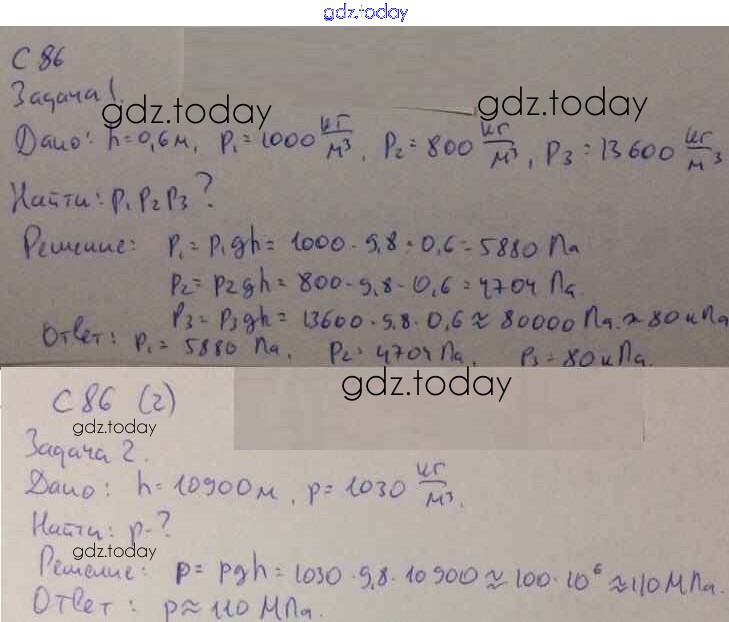 gdz.today
С 86
Задача 1.
gdz.today
gdz.today
Дано: h=0,6м, ρ₁=1000 кг/м³, ρ₂=800 кг/м³, ρ₃=13600 кг/м³
Найти: p₁ p₂ p₃?
Решение: p₁=ρ₁gh=1000·9,8·0,6=5880 Па
p₂=ρ₂gh=800·9,8·0,6=4704 Па.
p₃=ρ₃gh=13600·9,8·0,6≈80000 Па≈80 кПа
Ответ: p₁=5880 Па, p₂=4704 Па, p₃=80 кПа.
gdz.today
С 86 (2)
gdz.today
Задача 2.
Дано: h=10900м, ρ=1030 кг/м³.
Найти: p-?
gdz.today
Решение: p=ρgh=1030·9,8·10900≈100·10⁶≈110 МПа.
Ответ: p≈110 МПа.